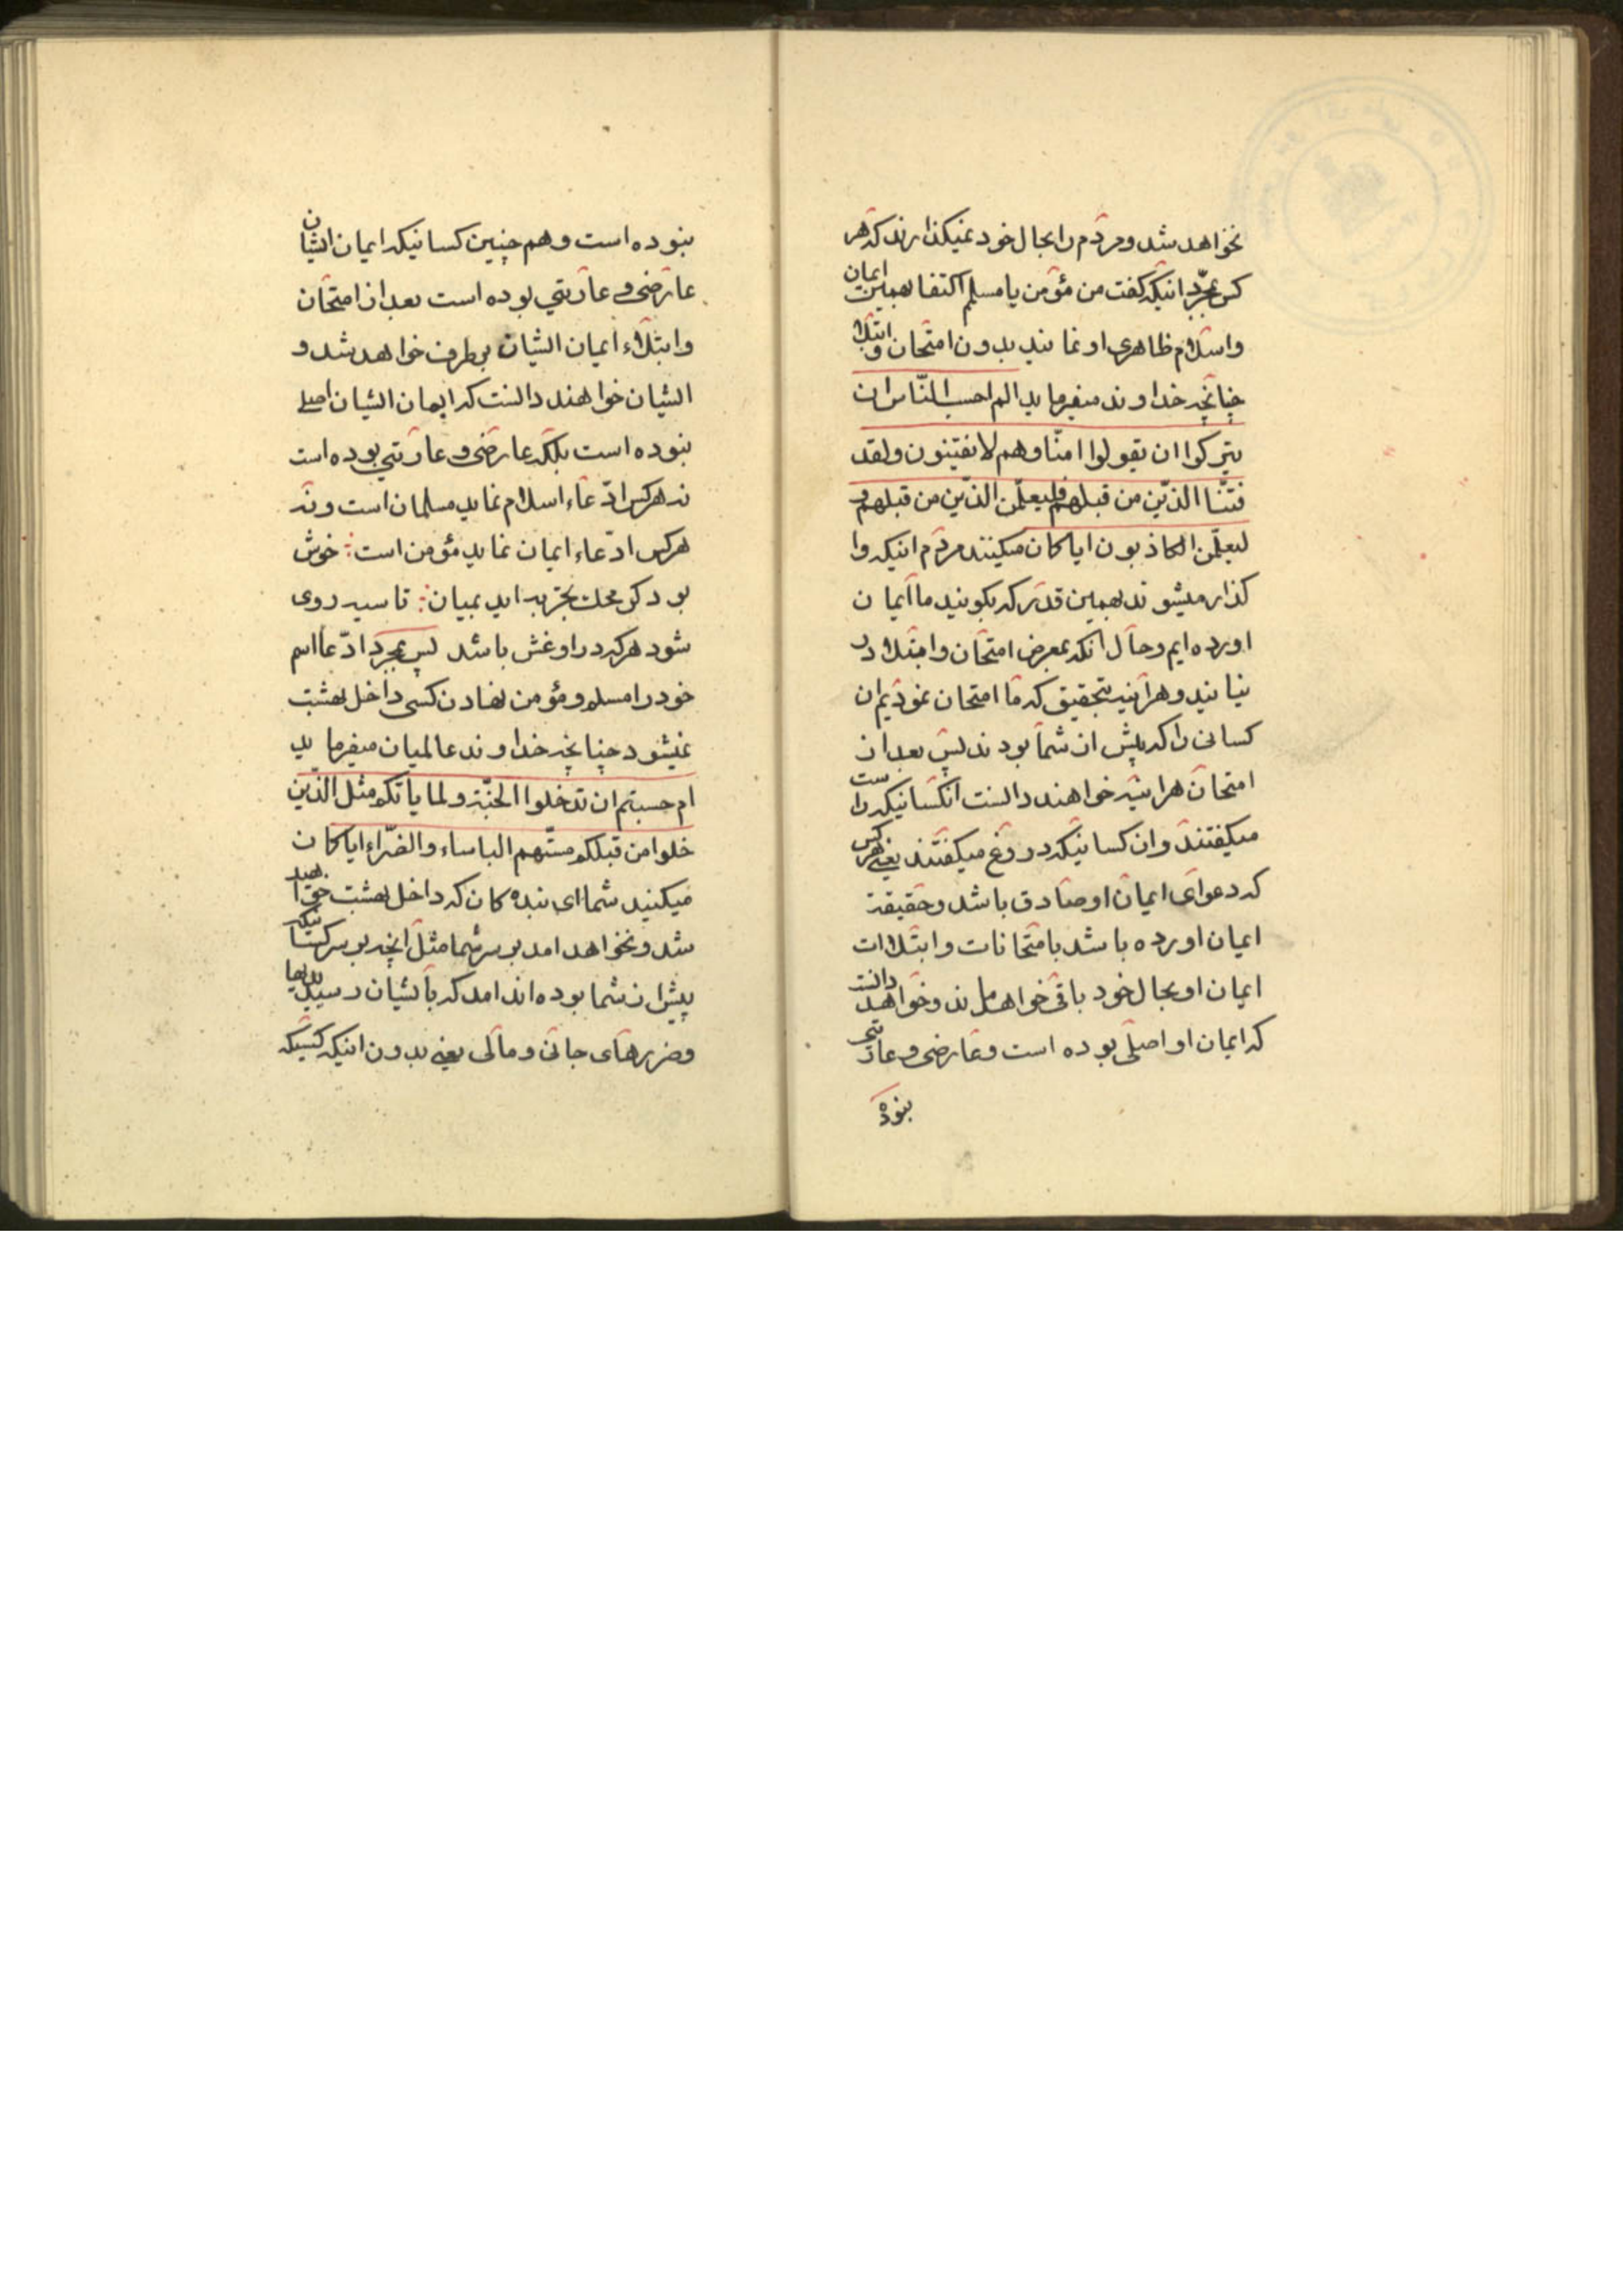 نخواهد شد و مردم را بحال خود نمیکذارند که هر
کس بمجرّد اینکه کفت من مؤمن یا مسلم اکتفا بهمین ایمان
و اسلام ظاهری او نمایند بدون امتحان و ابتلا
چنانچه خداوند میفرماید الم احسب النّاس ان
یترکوا ان یقولوا امنّا و هم لا یفتنون و لقد
فتنّا الذّین من قبلهم فلیعلّمن الذّین من قبلهم و
لیعلّمن الکاذبون ایا کان میکنند مردم اینکه وا
کذار میشوند بهمین قدر که بکویند ما ایمان
اورده ایم و حال انکه بمعرض امتحان و ابتلا در
نیایند و هراینه بتحقیق که ما امتحان نمودیم ان
کسانی را که پیش از شما بودند پس بعد از
امتحان هراینه خواهند دانست انکسانیکه راست
میکفتند و ان کسانیکه دروغ میکفتند یعنی هرکس
که دعوای ایمان او صادق باشد و حقیقة
ایمان اورده باشد بامتحانات و ابتلاات
ایمان او بحال خود باقی خواهد ماند و خواهد دانست
که ایمان او اصلی بوده است و عارضی و عاریتی
نبوده
نبوده است و هم چنین کسانیکه ایمان ایشان
عارضی و عاریتی بوده است بعد از امتحان
و ابتلاء ایمان ایشان برطرف خواهد شد و
ایشان خواهند دانست که ایمان ایشان اصلی
نبوده است بلکه عارضی و عاریتی بوده است
نه هرکس ادّعاء اسلام نماید مسلمان است و نه
هرکس ادّعاء ایمان نماید مؤمن است ؞ خوش
بود کر محک تجربه اید بمیان ؞ تا سیه روی
شود هرکه در او غش باشد پس بمجرّد ادّعا اسم
خود را مسلم و مؤمن نهادن کسی داخل بهشت
نمیشود چنانچه خداوند عالمیان میفرماید
ام حسبتم ان تدخلوا الجنّة و لما یاتکم مثل الذّین
خلوا من قبلکم مسّتهم الباساء و الضّراء ایا کان
میکنید شما ای بنده کان که داخل بهشت خواهید
شد و نخواهد امد بر سر شما مثل انچه بر سر کسانیکه
پیش از شما بوده اند امد که بایشان رسید بدیها
و ضررهای جانی و مالی یعنی بدون اینکه کسیکه